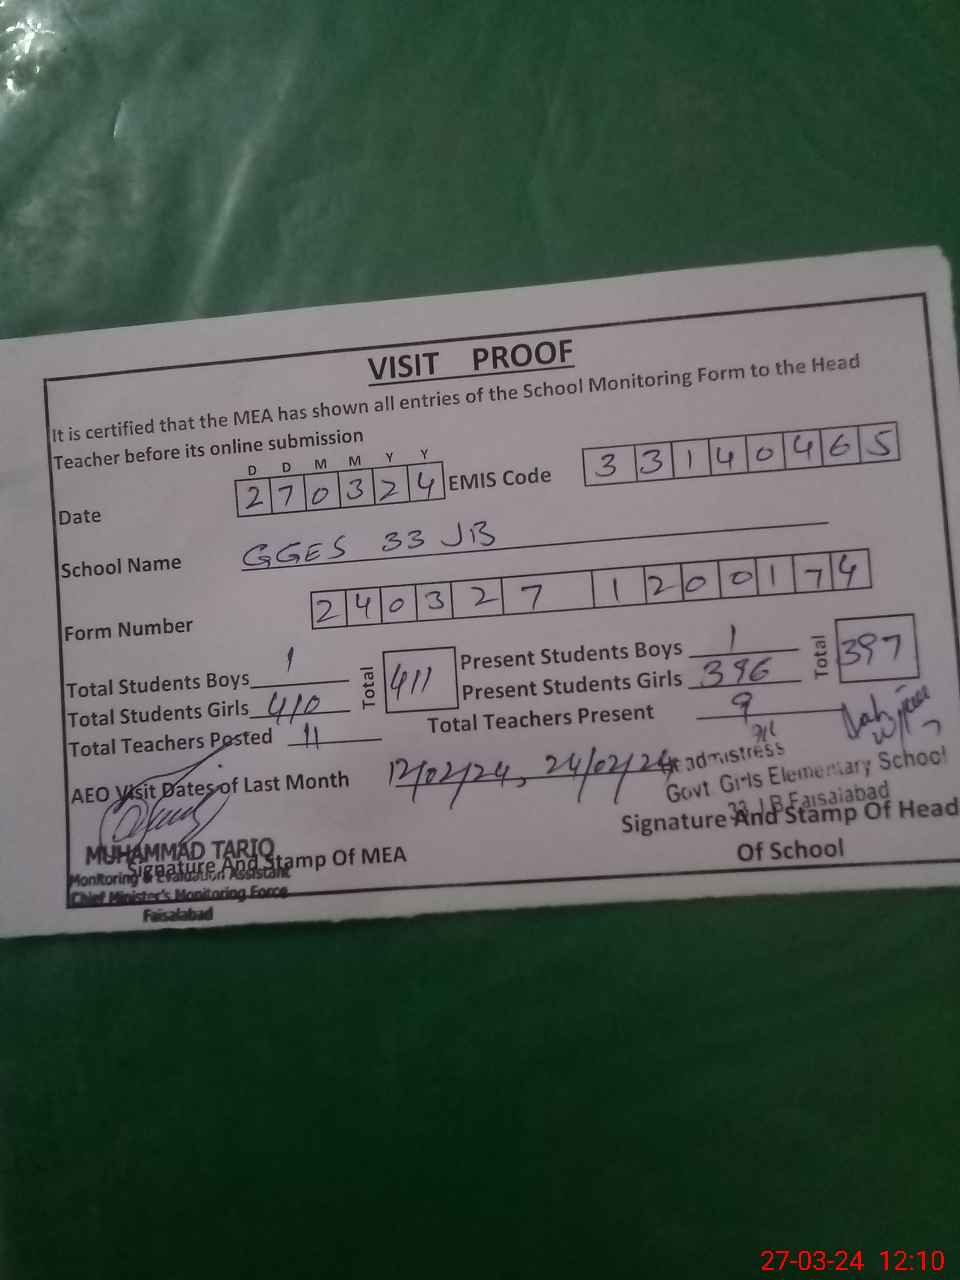 VISIT PROOF
It is certified that the MEA has shown all entries of the School Monitoring Form to the Head
Teacher before its online submission
D D M M Y Y
Date 270324 EMIS Code 33140465
School Name GGES 33 JB
Form Number 2403271200174
Total Students Boys 1 Total 411 Present Students Boys 1 Total 397
Total Students Girls 410 Present Students Girls 396
Total Teachers Posted 11 Total Teachers Present 9
AEO Visit Dates of Last Month 12/02/24, 24/02/24
Headmistress
Govt Girls Elementary School
33 J B Faisalabad
Signature And Stamp Of Head
Of School
MUHAMMAD TARIQ
Signature And Stamp Of MEA
Monitoring & Evaluation Assistant
Chief Minister's Monitoring Force
Faisalabad
27-03-24 12:10